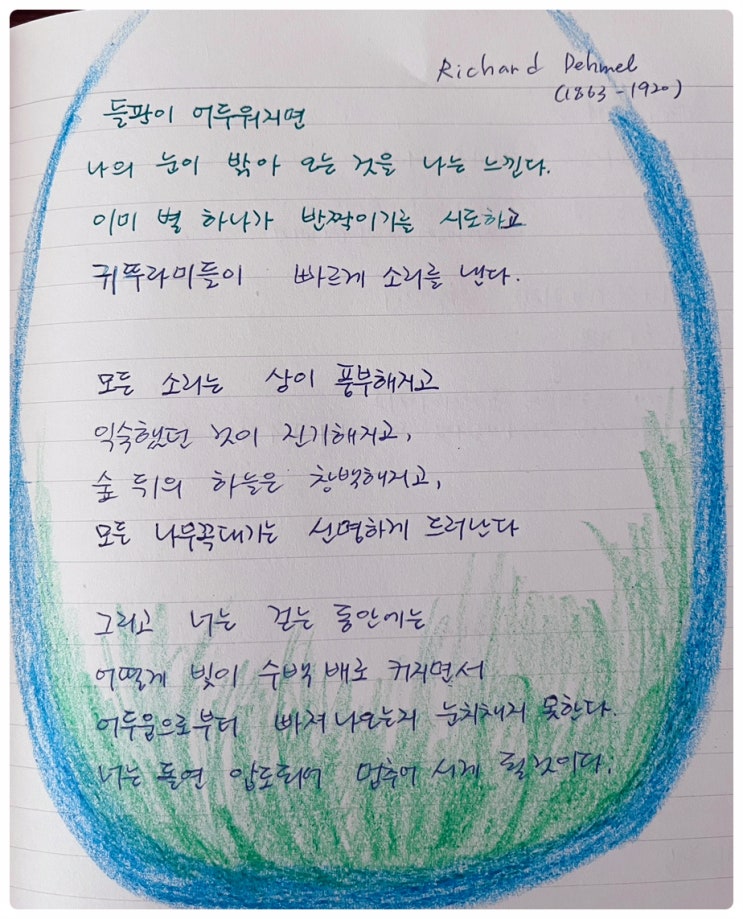 Richard Dehmel
(1863-1920)
들판이 어두워지면
나의 눈이 밝아 오는 것을 나는 느낀다.
이미 별 하나가 반짝이기를 시도하고
귀뚜라미들이 빠르게 소리를 낸다.
모든 소리는 상이 풍부해지고
익숙했던 것이 진기해지고,
숲 뒤의 하늘은 창백해지고,
모든 나무꼭대기는 선명하게 드러난다
그리고 너는 걷는 동안에는
어떻게 빛이 수백 배로 커지면서
어두움으로부터 빠져나오는지 눈치채지 못한다.
너는 돌연 압도되어 멈추어 서게 될것이다.